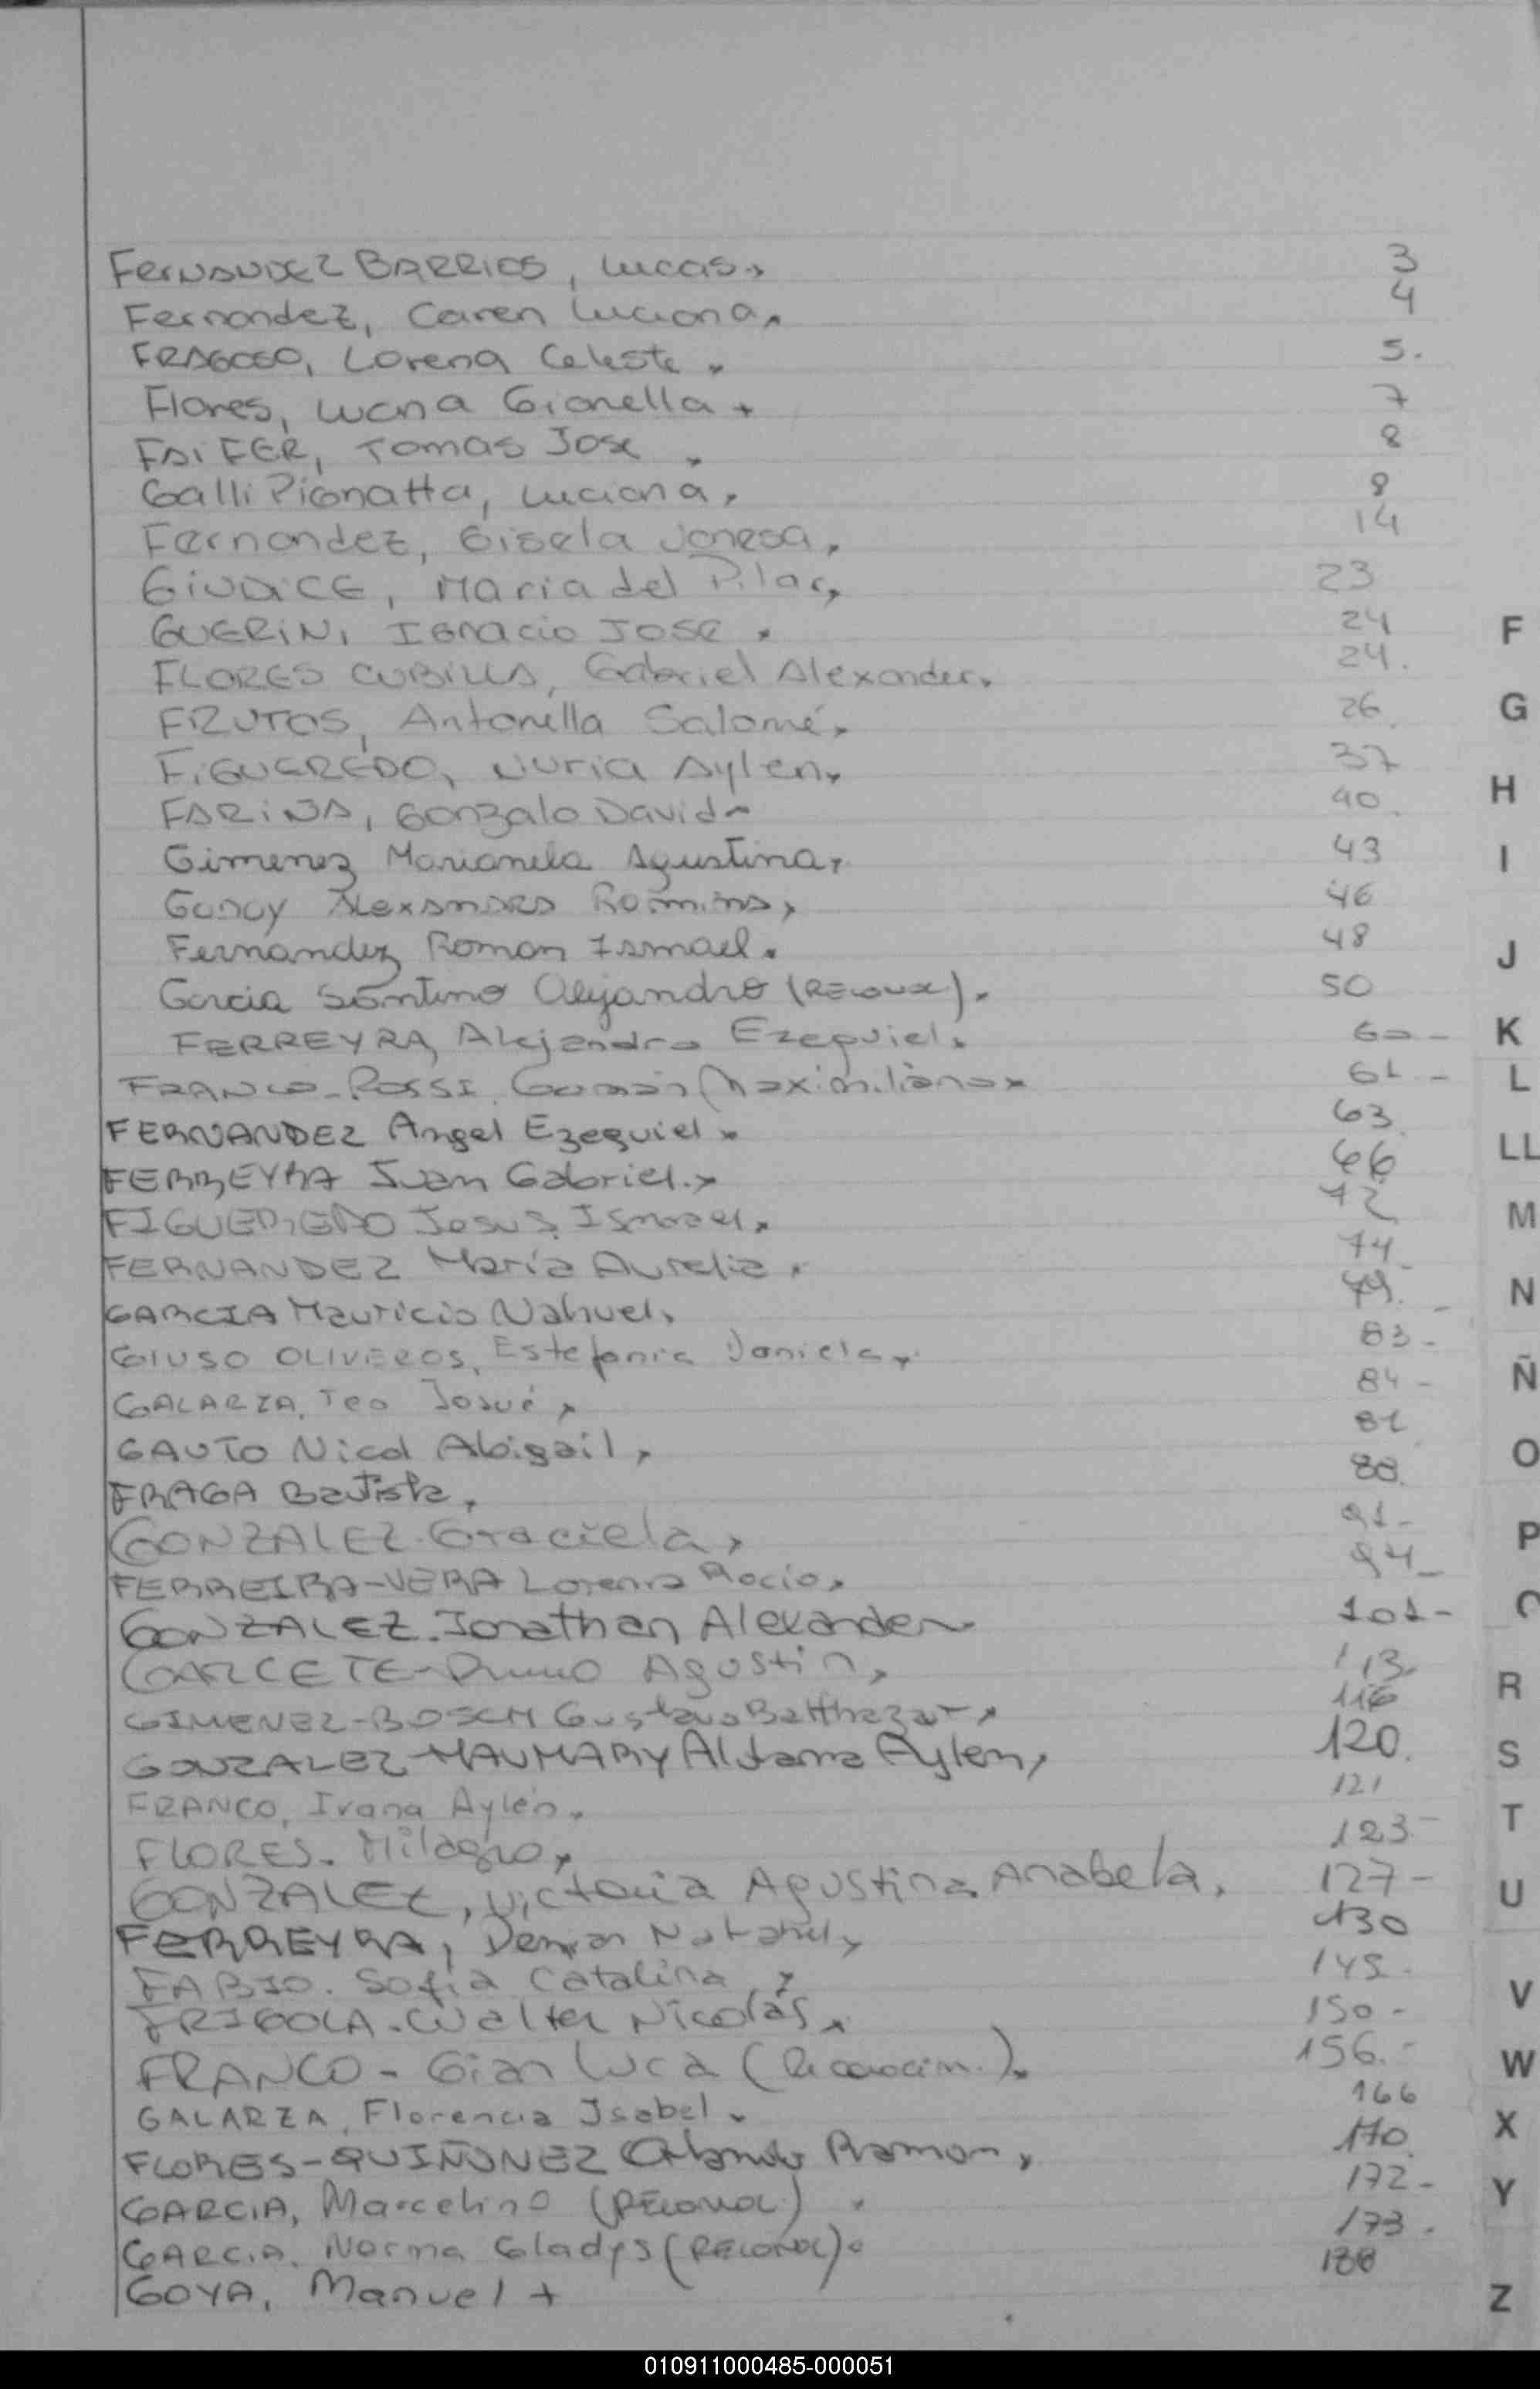 FERNANDEZ BARRIOS, Lucas 3
Fernandez, Caren Luciana 4
FRAGOSO, Lorena Celeste 5.
Flores, Luana Gianella 7
FAIFER, Tomas Jose 8
Galli Pignatta, Luciana 8
Fernandez, Gisela Vanesa, 14
GIUDICE, Maria del Pilar, 23
GUERIN, Ignacio Jose 24
FLORES CUBILLA, Gabriel Alexander. 24.
FRUTOS, Antonella Salomé, 26
FIGUEREDO, Nuria Aylen, 37
FARIÑA, Gonzalo David 40
Gimenez Marianela Agustina, 43
Godoy Alexandra Romina, 46
Fernandez Roman Ismael. 48
Garcia Santino Alejandro (RECONOC.). 50
FERREYRA, Alejandro Ezequiel. 60-
FRANCO-ROSSI, Maximiliano 61-
FERNANDEZ Angel Ezequiel 63
FERREYRA Juan Gabriel. 66
FIGUEREDO Jesus Ismael, 72
FERNANDEZ María Aurelia, 74
GARCIA Mauricio Nahuel, 79.
GIUSO OLIVEROS, Estefania Daniela, 83-
GALARZA, Teo Josué, 84-
GAUTO Nicol Abigail, 81
FRAGA Bautista, 88.
GONZALEZ. Graciela, 91-
FERREIRA-VERA Lorena Rocio, 94-
GONZALEZ. Jonathan Alexander 101-
GARCETE- Agustin, 113.
GIMENEZ-BOSCH Gustavo Balthazar, 116
GONZALEZ-MAUMARY Aldana Aylen, 120.
FRANCO, Ivana Aylén, 121
FLORES. Milagro, 123-
GONZALEZ, Victoria Agustina Anabela, 127-
FERREYRA, Demian 130
FABIO. Sofia Catalina, 145-
FRIGOLA-Walter Nicolás, 150-
FRANCO - Gian Luca (Reconocim.). 156.-
GALARZA, Florencia Isabel. 166
FLORES-QUIÑONEZ Orlando Ramon, 170.
GARCIA, Marcelino (RECONOC.) 172-
GARCIA. Norma Gladys (RECONOC.) 173.
GOYA, Manuel + 188
F
G
H
I
J
K
L
LL
M
N
Ñ
O
P
Q
R
S
T
U
V
W
X
Y
Z
010911000485-000051